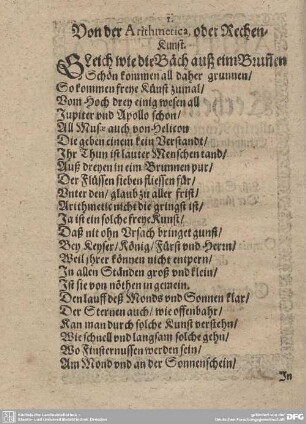 1.
Von der Arithmetica, oder Rechen-
Kunst.
GLeich wie die Bäch auß eim Brunnen
Schön kommen all daher grunnen/
So kommen freye Künst zumal/
Vom Hoch drey einig wesen all
Jupiter vnd Apollo schon/
All Musæ auch von Helicon
Die geben einem kein Verstandt/
Ihr Thun ist lauter Menschen tand/
Auß dreyen in eim Brunnen pur/
Der Flüssen sieben fliessen für/
Vnter den/ glaub zu aller frist/
Arithmetic nicht die gringst ist/
Ja ist ein solche freye Kunst/
Daß nit ohn Vrsach bringet gunst/
Bey Keyser/ König/ Fürst vnd Herrn/
Weil jhrer können nicht entpern/
In allen Ständen groß vnd klein/
Ist sie von nöthen in gemein.
Den lauff deß Monds vnd Sonnen klar/
Der Sternen auch/ wie offenbahr/
Kan man durch solche Kunst verstehn/
Wie schnell vnd langsam solche gehn/
Wo Finsternussen werden sein/
Am Mond vnd an der Sonnenschein/
In